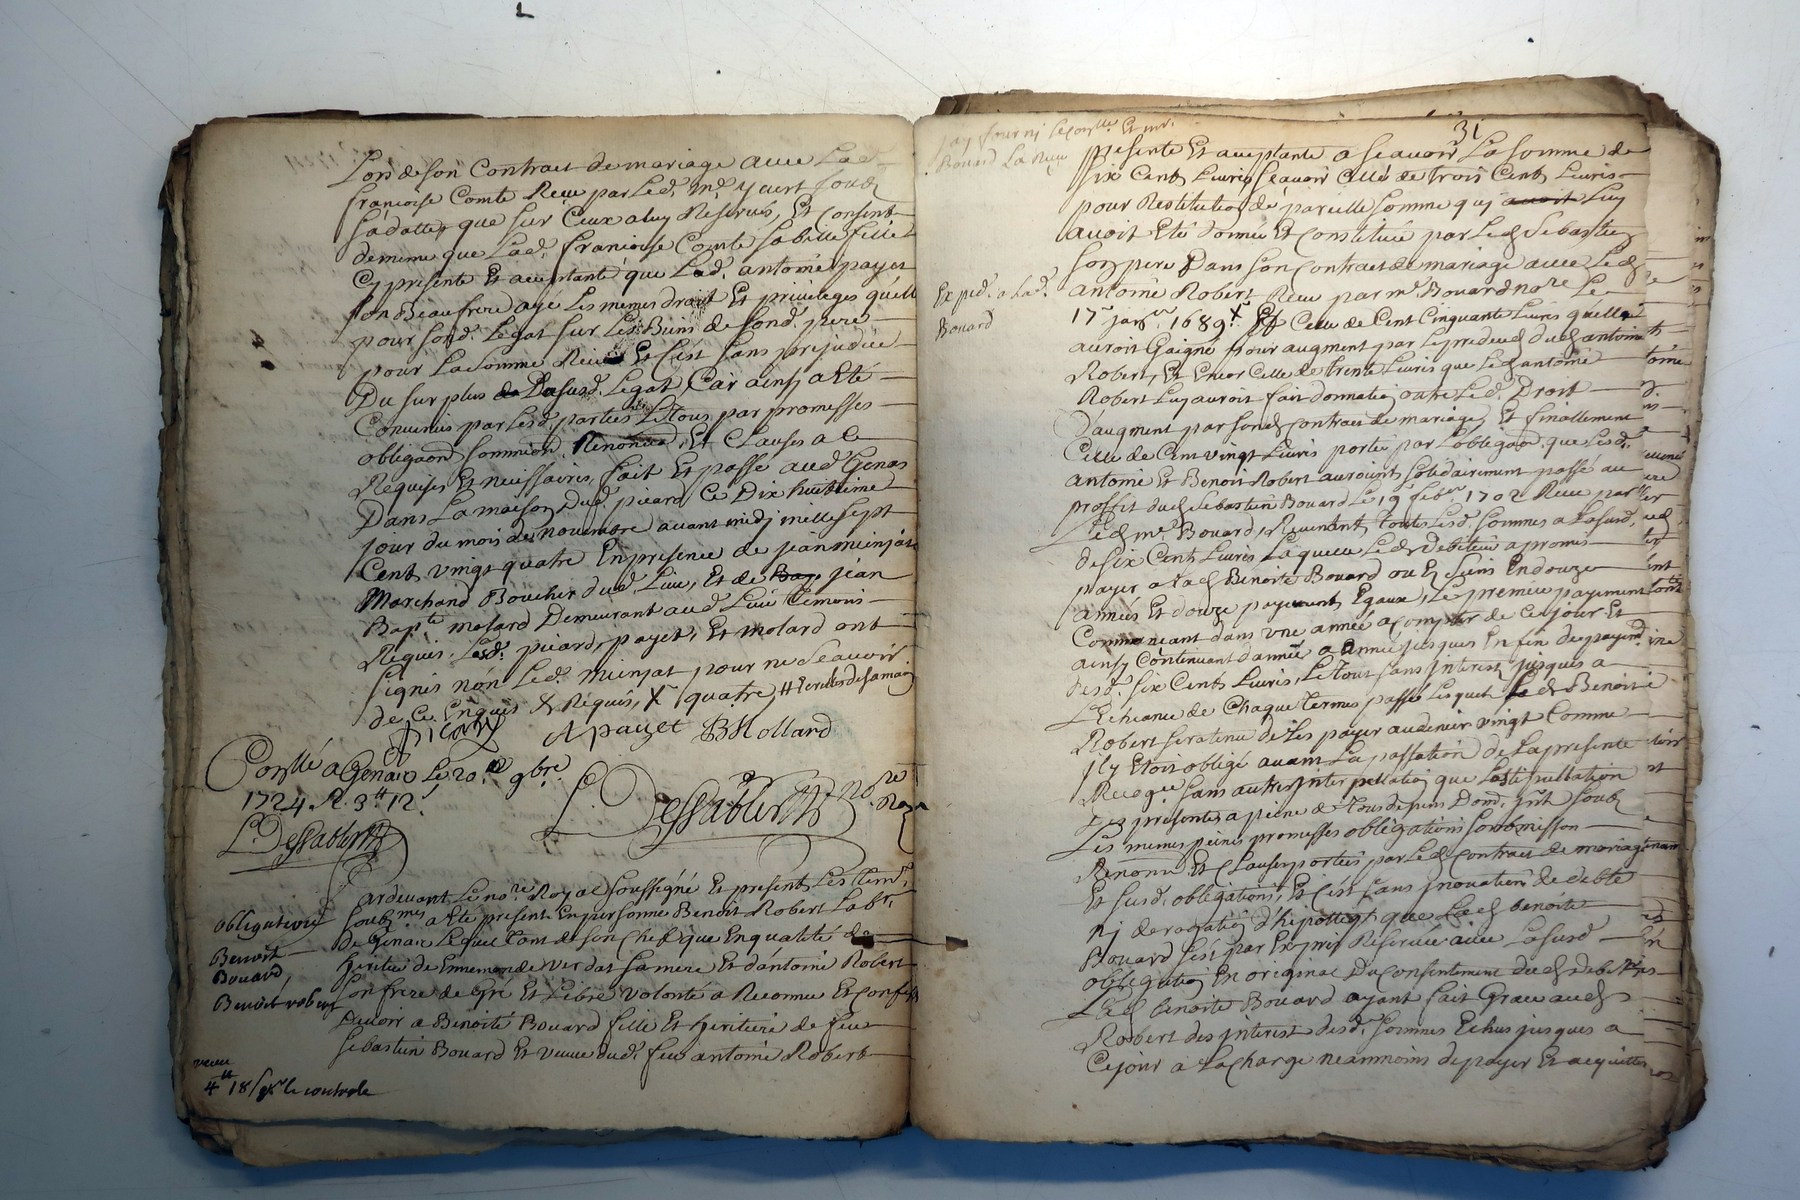 Lors de son Contract de mariage avec Lad.
françoise Comte Reçu par Led. me. yvert
sadatte, que sur Ceux a luy Reservés, Et Consent
de meme que Lad. françoise Comte sa belle fille
Cy presente Et acceptante que Lad. antoine payet
son Beaufrere aye Les memes droit Et privileges qu'elle
pour sond. Legat sur Les Biens de sond. pere
pour La somme Et C'est sans prejudice
Du surplus Dususd. Legat Car ainsy a Eté
Convenus par Lesd. parties Le tous par promesses
obligaon soumision Renonciaon, Et Clauses a Ce
Requises Et necessaires, fait Et passé aud. Genas
Dans La maison Dud. picard Ce Dix huitieme
jour du mois de novembre avant midj mille sept
Cent vingt quatre En presence de jean minjat
Marchand Boucher dud. Lieu, Et de jean
Bapte molard Demeurant aud. Lieu Temoins
Requis. Lesd. picard, payet, Et molard ont
signés non Led. minjat pour ne scavoir
de Ce Enquis & Requis, X quatre,
Picard A payet B Mollard
Conllé a Genas Le 20e. 9bre.
1724. R. 3tt 12s.
L. Dessablerin
L. Dessablerin nore Royal
Pardevant Le nore. Royal soussigné Et present Les tem.
soubmes. a Eté present En personne Benoit Robert Labr.
de Genas Lequel tant de son Chef que En qualité de
heritier de Ennemonde verdat sa mere Et d'antoine Robert
son frere de Gré Et Libre volonté a Reconnu Et Confesse
Devoir a Benoite Bouard fille Et heritiere de feu
sebastien Bouard Et veuve dud. feu antoine Robert
obligation
Benoite
Bouard
Benoit robert
4tt 18s le controle
31
Bouard La
Exped. a Lad.
Bouard
presente Et acceptante a sçavoir La somme de
six Cents Livres sçavoir Celle de trois Cents Livres
pour Restitution de pareille somme quj avoit Luy
avoit Eté donnée Et Constituée par Led Sebastien
son pere Dans son Contract de mariage avec Led
antoine Robert Reçu par me. Bouard nore Le
17e janer. 1689 X Celle de Cent Cinquante Livres quelle
auroit Gaigné pour augment par Le predeced dud antoine
Robert, Et Encor Celle de trente Livres que Led antoine
Robert Luy auroit fait donnation outre Led. Droit
D'augment par sond Contract de mariage, Et finallement
Celle de Cent vingt Livres portée par L'obligaon. que Lesd.
antoine Et Benoit Robert auroint solidairement passé au
proffit dud sebastien Bouard Le 19 febr. 1702 Reçue par
Led me. Bouard, Revenants toutes Lesd. sommes a La susd.
de six Cents Livres Laquelle Led debiteur a promis
payer a Lad Benoite Bouard ou Es siens En douze
années Et douze payements Egaux, Le premier payement
Commençant dans une année a Compter de Ce jour Et
ainsy Continuant d'année a année jusques En fin de payemt.
desd. six Cents Livres, Le tout sans interest jusques a
L'Echeance de Chaque termes passés Lesquels Led Benoit
Robert sera tenu de Les payer au denier vingt Comme
jl y Etoit obligé avant La passation de La presente
sans autre interpellation que La stipulation
presentes a peine de tous depens Dom. jnt soub
Les memes peines promesses obligations soubmission
Renonon Et Clauses portées par Led Contract de mariage
Et susd. obligations, Et C'est sans jnovation de debte
nj derogation d'hipotteqt que Lad benoite
Bouard s'est par Exprés Reservée avec La susd
obligation En original Du Consentement dud debiteur
Lad benoite Bouard ayant fait Grace aud
Robert des jnterest desd. sommes Echus jusques a
Cejour a La charge neanmoins de payer Et acquitter